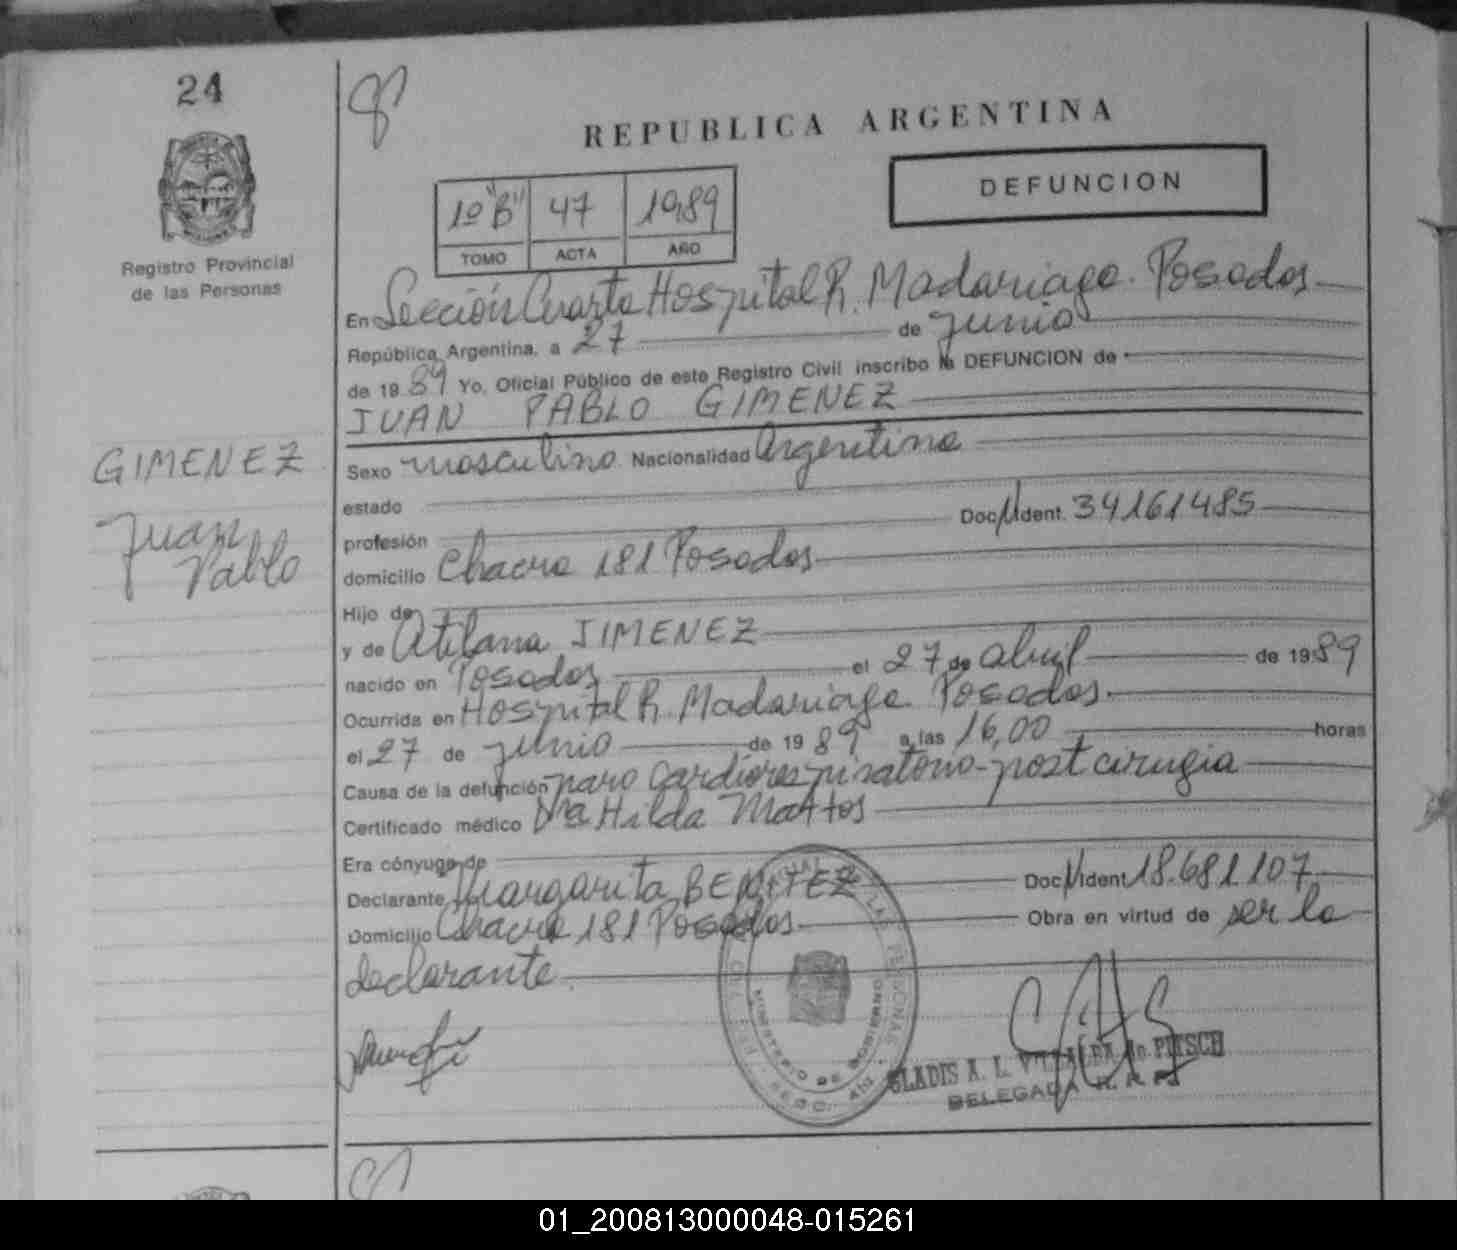 24
REPUBLICA ARGENTINA
DEFUNCION
1º "B" 47 1989
TOMO ACTA AÑO
Registro Provincial
de las Personas
En Sección Cuarta Hospital R. Madariaga. Posadas
República Argentina, a 27 de junio
de 19 89 Yo, Oficial Público de este Registro Civil inscribo la DEFUNCION de
JUAN PABLO GIMENEZ
GIMENEZ
Juan
Pablo
Sexo masculino Nacionalidad Argentina
estado
profesión Doc N ident. 34161485
domicilio Chacra 181 Posadas
Hijo de
y de Atilana JIMENEZ
nacido en Posadas el 27 de abril de 19 89
Ocurrida en Hospital R. Madariaga Posadas.
el 27 de junio de 19 89 a las 16,00 horas
Causa de la defunción paro cardiorespiratorio-post cirugia
Certificado médico Dra Hilda Mattos
Era cónyuge de
Declarante Margarita BENITEZ Doc N ident 18.681.107
Domicilio Chacra 181 Posadas. Obra en virtud de ser la
declarante.
MINISTERIO DE GOBIERNO
GLADIS A. L. VILLALBA de PITSCH
DELEGADA R. P. P.
01_200813000048-015261